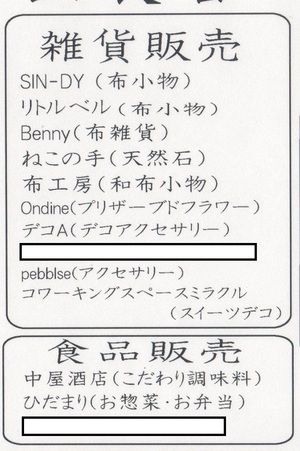 雑貨販売
SIN-DY(布小物)
リトルベル(布小物)
Benny(布雑貨)
ねこの手(天然石)
布工房(和布小物)
Ondine(プリザーブドフラワー)
デコA(デコアクセサリー)
pebblse(アクセサリー)
コワーキングスペースミラクル
(スイーツデコ)
食品販売
中屋酒店(こだわり調味料)
ひだまり(お惣菜・お弁当)